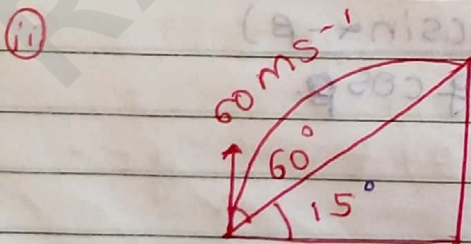 ii
60 ms⁻¹
60°
15°